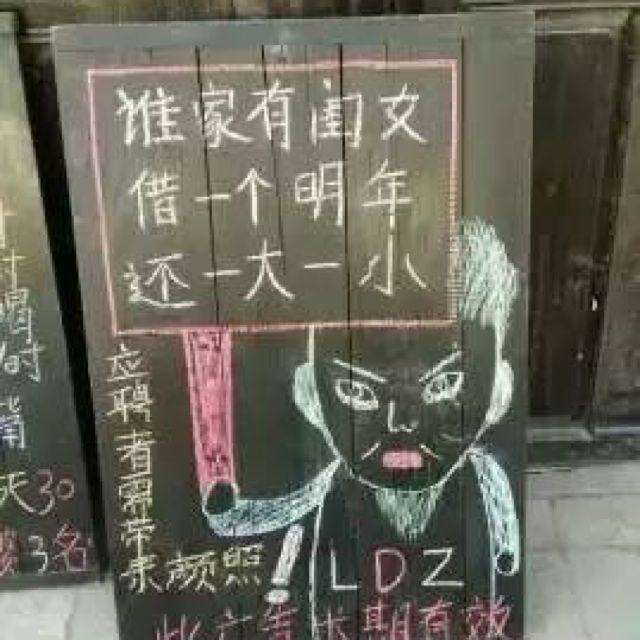 谁家有闺女
借一个明年
还一大一小
应聘者需带
素颜照!
LDZ
此广告长期有效
天30
3名